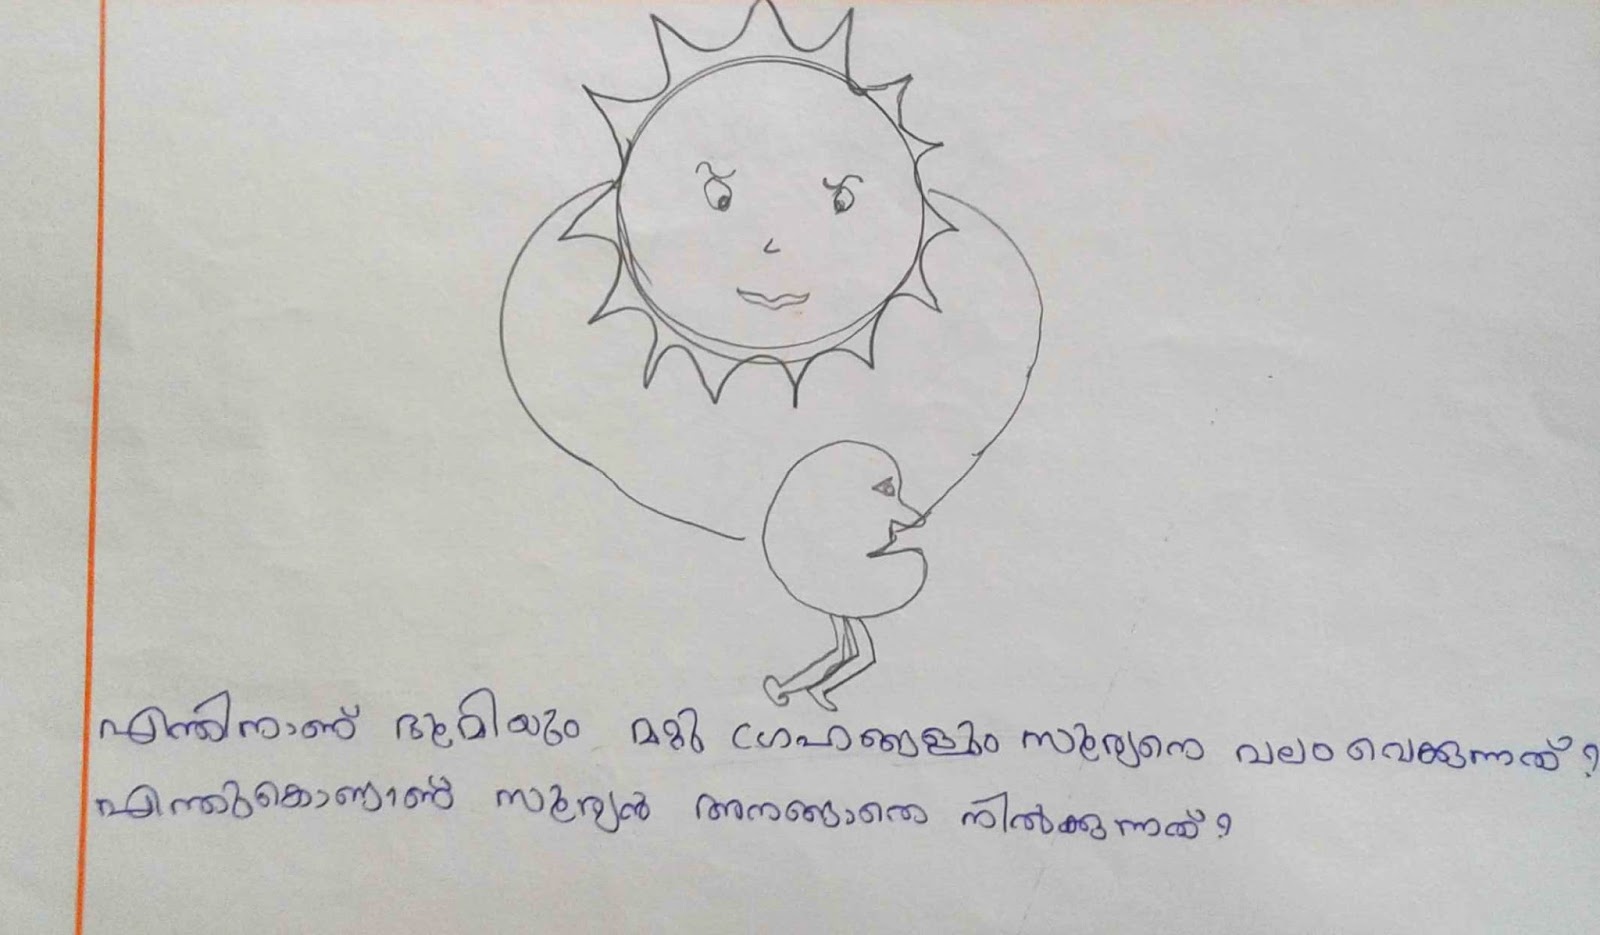 എന്തിനാണ് ഭൂമിയും മറ്റു ഗ്രഹങ്ങളും സൂര്യനെ വലം വെക്കുന്നത്?
എന്തുകൊണ്ടാണ് സൂര്യൻ അനങ്ങാതെ നിൽക്കുന്നത്?